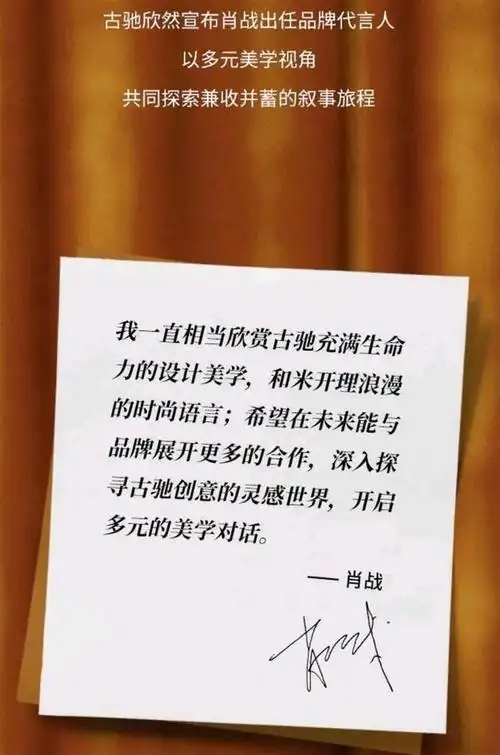 古驰欣然宣布肖战出任品牌代言人
以多元美学视角
共同探索兼收并蓄的叙事旅程
我一直相当欣赏古驰充满生命
力的设计美学，和米开理浪漫
的时尚语言；希望在未来能与
品牌展开更多的合作，深入探
寻古驰创意的灵感世界，开启
多元的美学对话。
—— 肖战
肖战